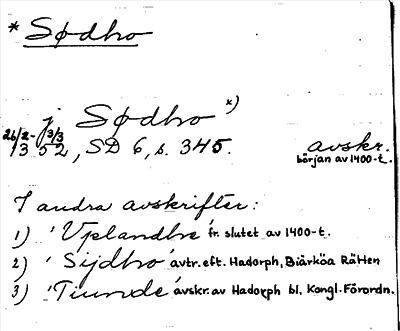 * Sødbo
j Sødbo *)
26/2-3/3
1352, SD 6, s. 345. avskr.
början av 1400-t.
I andra avskrifter:
1) 'Vplandbn' fr. slutet av 1400-t.
2) 'Sijdbo' avtr. eft. Hadorph, Biärköa Rätten
3) 'Tiunde' avskr. av Hadorph bl. Kongl. Förordn.